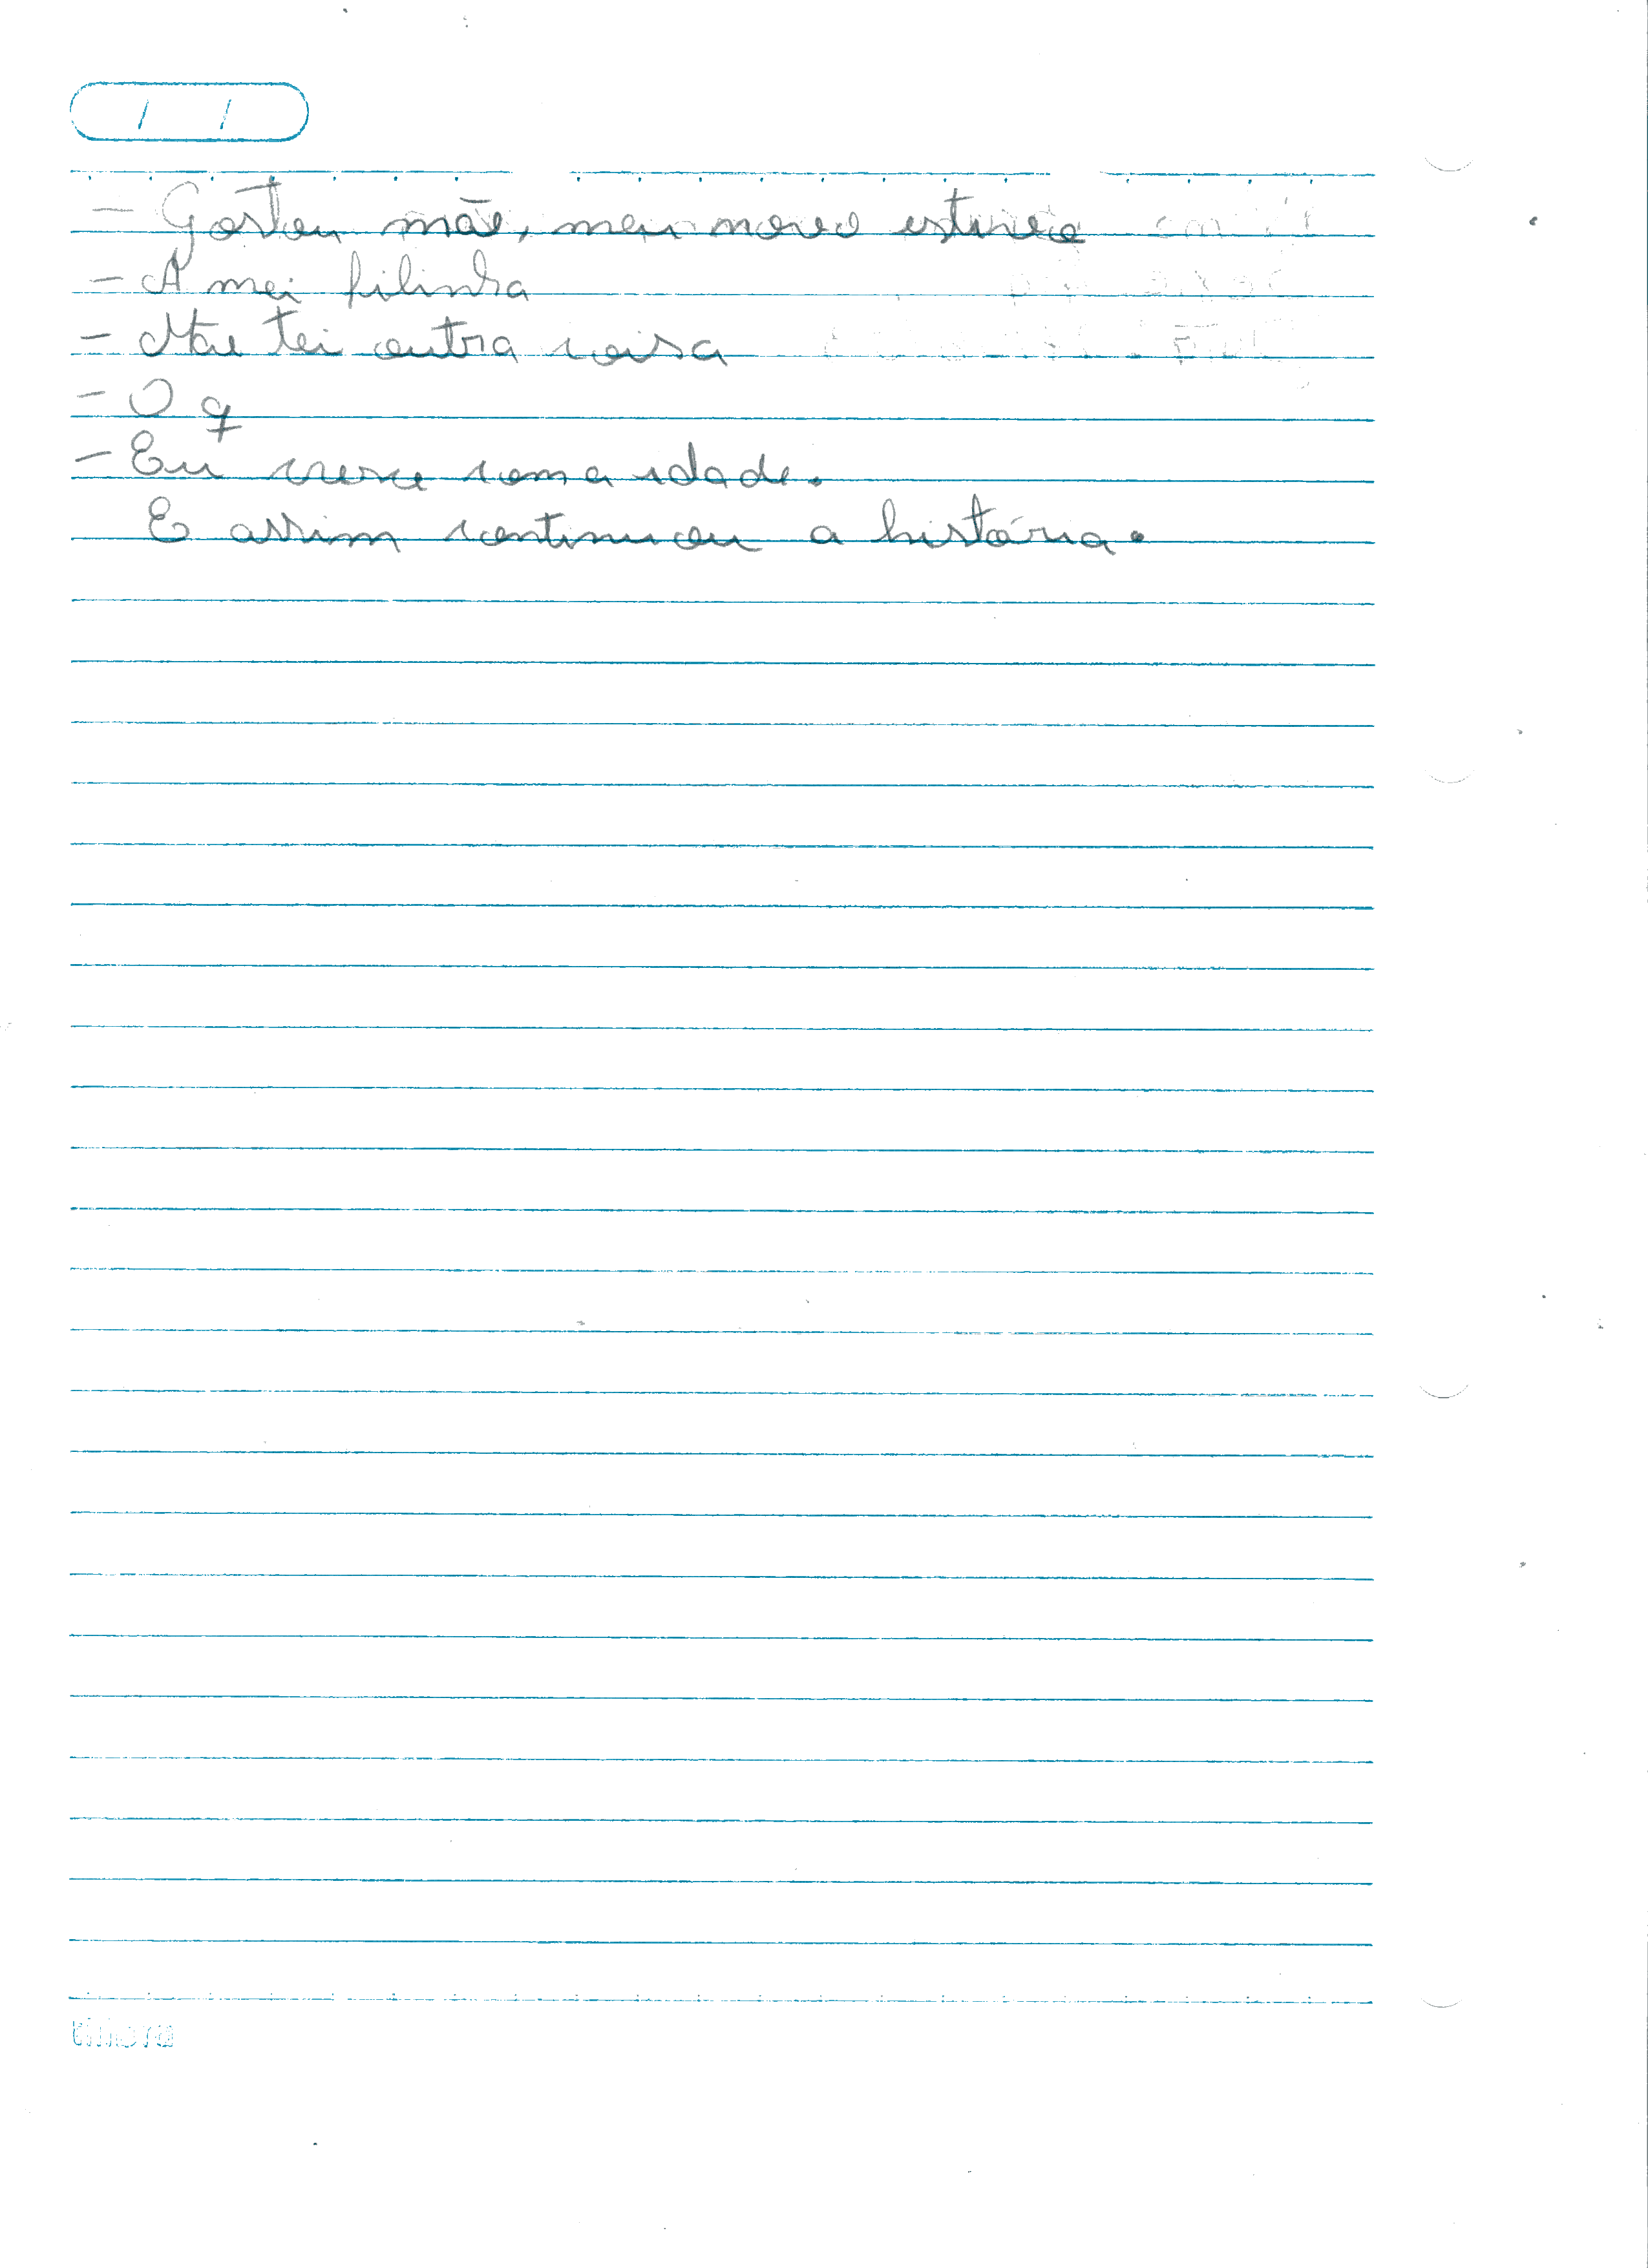 - Gostou mãe, meu novo
- A mei filinha
- Mãe tei outra coisa
- O q
- Eu cresce com a idade.
E assim continuou a história.